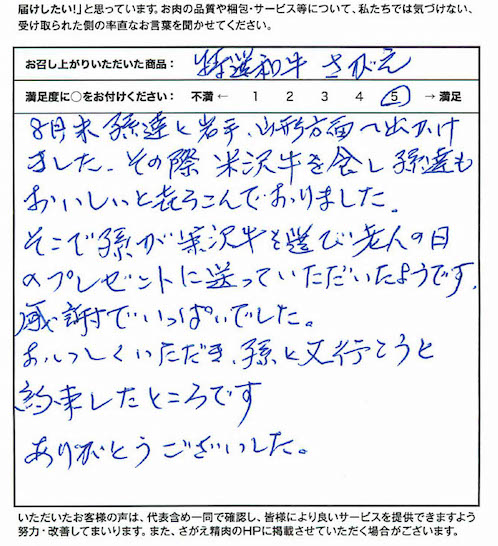 届けしたい！」と思っています。お肉の品質や梱包・サービス等について、私たちでは気づけない、
受け取られた側の率直なお言葉を聞かせてください。
お召し上がりいただいた商品： 特選和牛 さがえ
満足度に○をお付けください： 不満 ← 1 2 3 4 5 → 満足
8月末孫達と岩手、山形方面へ出かけ
ました。その際 米沢牛を食し孫達も
おいしいと喜ろこんでおりました。
そこで孫が米沢牛を選び老人の日
のプレゼントに送っていただいたようです。
感謝でいっぱいでした。
おいしくいただき、孫と又行こうと
約束したところです
ありがとうございました。
いただいたお客様の声は、代表含め一同で確認し、皆様により良いサービスを提供できますよう
努力・改善してまいります。また、さがえ精肉のHPに掲載させていただく場合がございます。